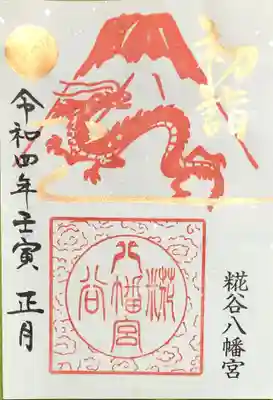 初詣
令和四年壬寅 正月
糀谷八幡宮
八幡宮
糀谷